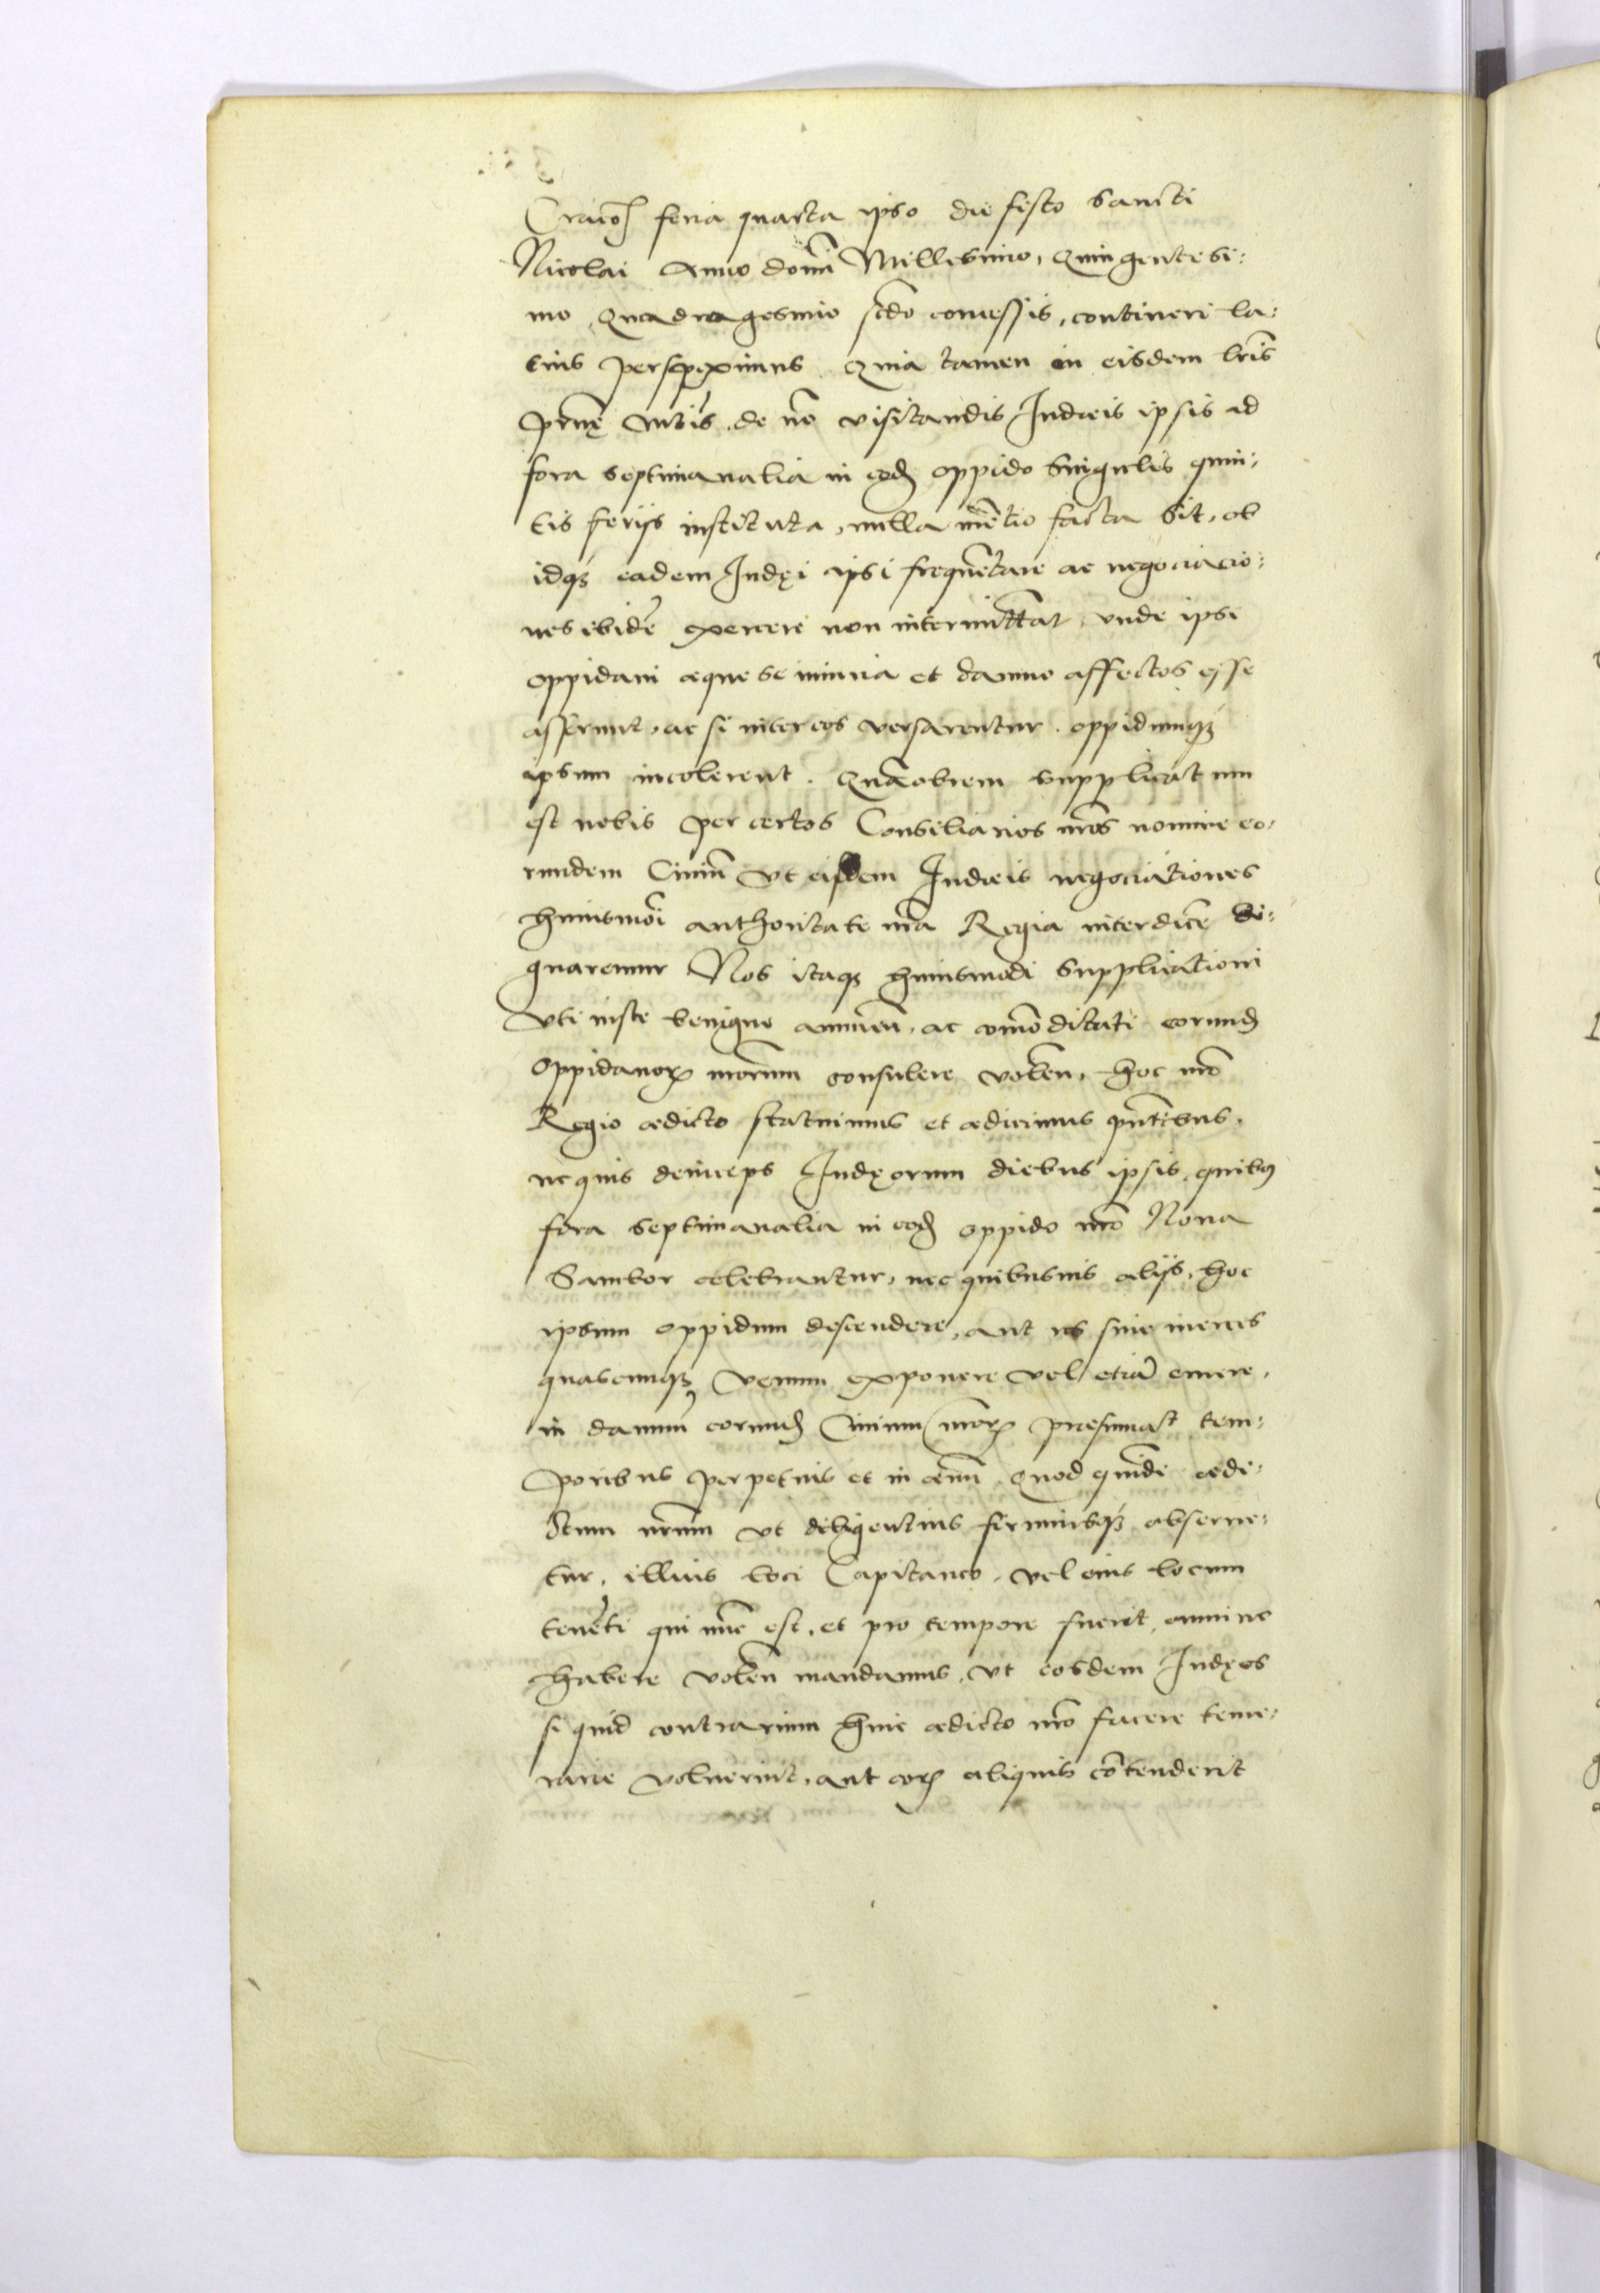 Cracoȝ feria quarta ipso die festo Sancti
Nicolai Anno domī Millesimo, Quingentesi:
mo Quadragesimo scdo concessis, contineri la:
tius perspeximus. Quia tamen in eisdem lrīs
de nō visitandis Iudæis ipsis ad
fora septimanalia in eodȝ oppido singulis quin:
tis ferijs instituta, nulla mētio facta sit, ob
idqȝ eadem Iudęi ipsi frequētare ac negociacio:
nes ibidē exercere non intermittāt, vnde ipsi
oppidani æque se iniuria et damno affectos esse
asserunt, ac si inter eos versarentur. oppidumqȝ
ipsum incolerent. Quāobrem supplicatum
est nobis per certos Consiliarios nrōs nomine eo:
rundem Ciuiū vt eisdem Iudæis negociationes
huiusmōi authoritate nrā Regia interdicē di:
gnaremur Nos itaqȝ huiusmodi supplicationi
vti iuste benigne annuēn. ac com̄oditati eorundȝ
oppidanorꝝ nrōrum consulere volēn. hoc nrō
Regio ædicto statuimus et ædicimus pn̄tibus,
ne quis deinceps Iudęorum diebus ipsis, quibus
fora septimanalia in eodȝ oppido nrō Noua
Sambor celebrantur, nec quibusuis alijs, hoc
ipsum oppidum descendere, aut res siue merces
quascunqȝ venum exponere vel etiā emere,
in damnū eorundȝ Ciuium nrōrꝝ præsumat tem:
poribus perpetuis et in æuū. Quod quidē ædi:
ctum nrūm vt diligentius firmiusqȝ obserue:
tur, illius loci Capitaneo, vel eius locum
tenēti qui nūc est, et pro tempore fuerit, omnino
habere volēn mandamus, vt eosdem Iudęos
si quid contrarium huic ædicto nrō facere teme:
rarie voluerint, aut eorꝝ aliquis cōtenderit